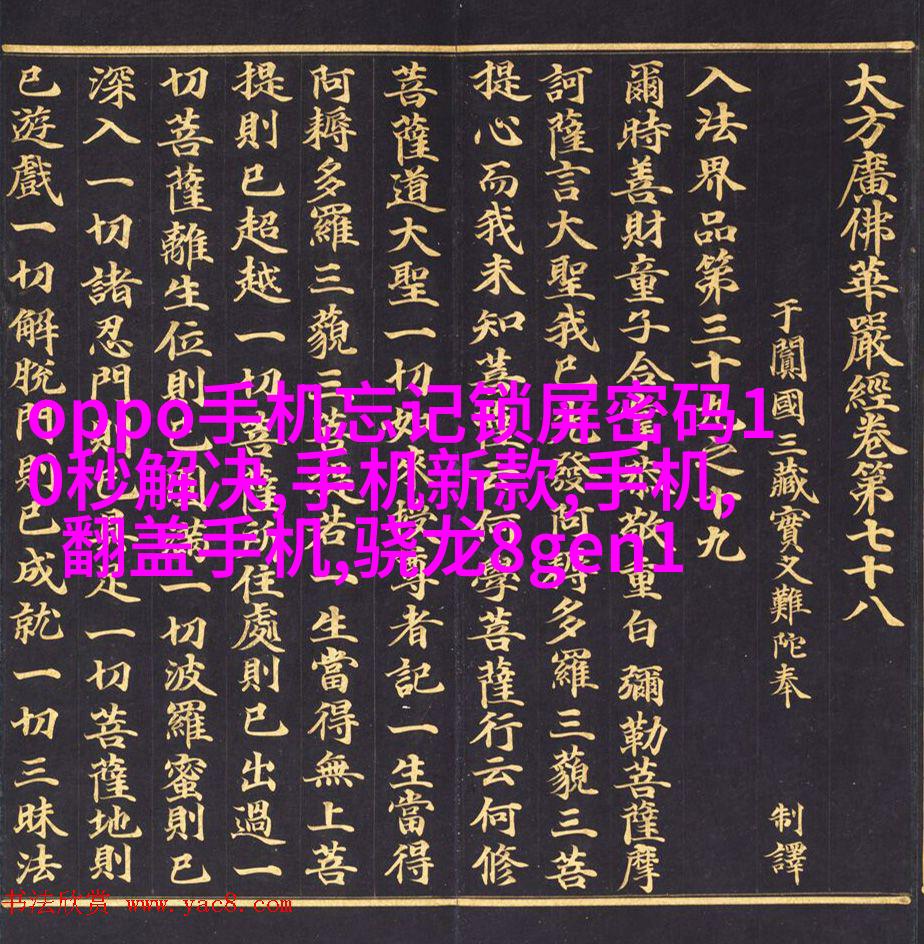 大方廣佛華嚴經卷第七十八
于闐國三藏實叉難陀奉 制譯
入法界品第三十九之十九
爾時善財童子合掌恭敬重白彌勒菩薩摩
訶薩言大聖我已先發阿耨多羅三藐三菩
提心而我未知菩薩云何學菩薩行云何修
菩薩道大聖一切如來授尊者記一生當得
阿耨多羅三藐三菩提若一生當得無上菩
提則已超越一切菩薩所住處則已出過一
切菩薩離生位則已圓滿一切波羅蜜則已
深入一切諸忍門則已具足一切菩薩地則
已遊戲一切解脫門則已成就一切三昧法
oppo手机忘记锁屏密码1
0秒解决,手机新款,手机,
翻盖手机,骁龙8gen1
书法欣赏 www.yac8.com